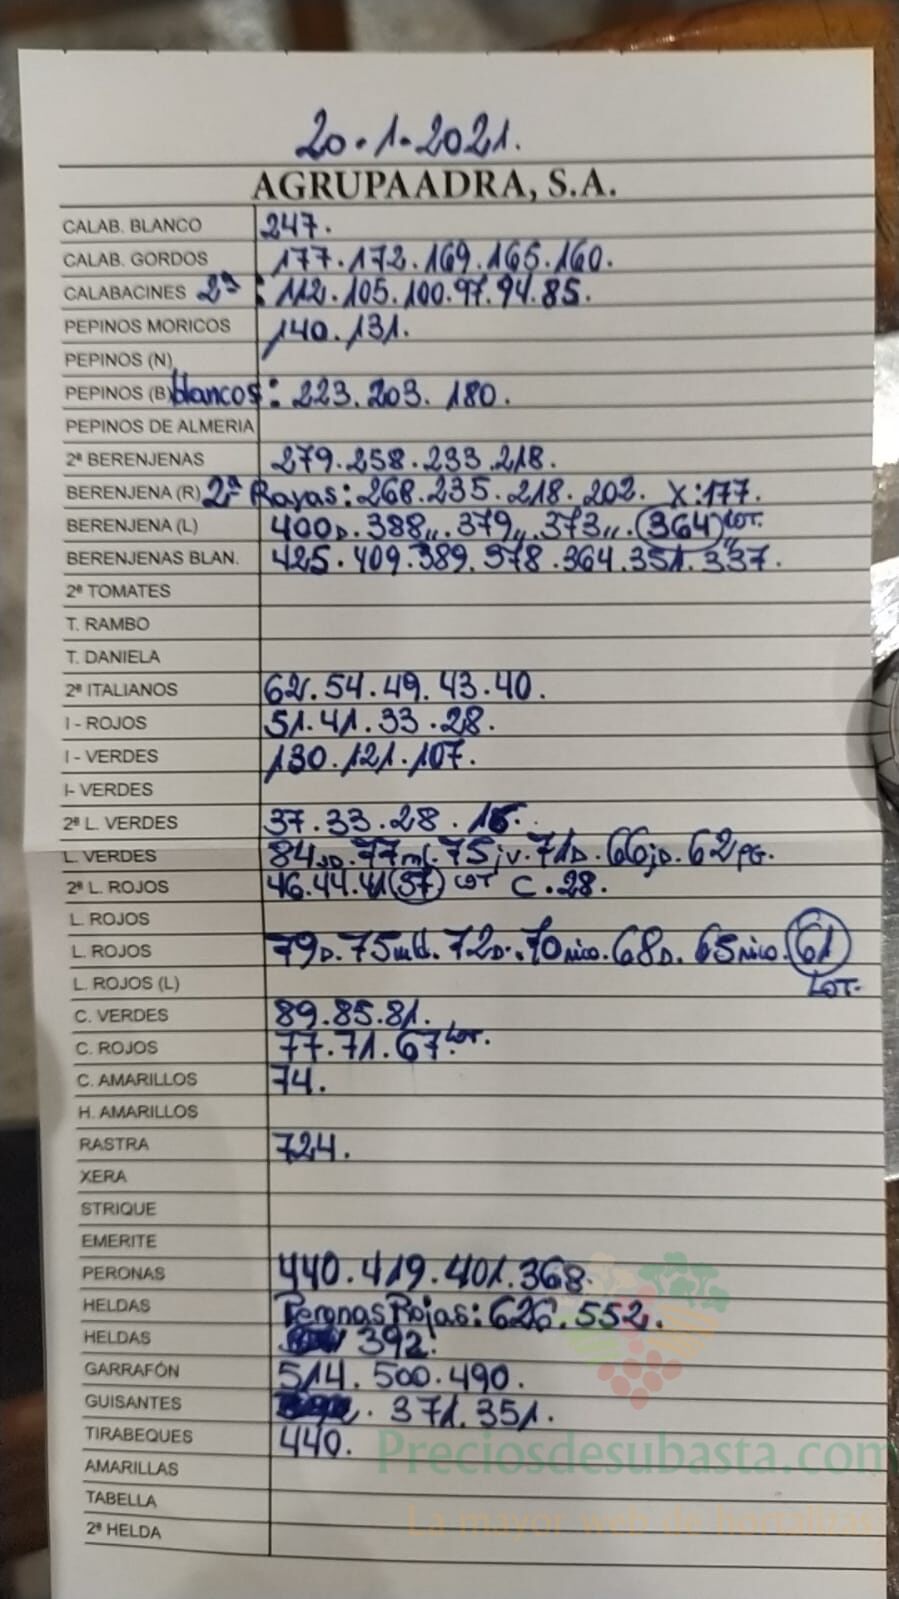 20.1.2021.
AGRUPAADRA, S.A.
CALAB. BLANCO 247.
CALAB. GORDOS 177.172.169.165.160.
CALABACINES 2ª: 112.105.100.97.94.85.
PEPINOS MORICOS 140.131.
PEPINOS (N)
PEPINOS (B) blancos: 223.203.180.
PEPINOS DE ALMERIA
2ª BERENJENAS 279.258.233.218.
BERENJENA (R) 2ª Rayas: 268.235.218.202. X:177.
BERENJENA (L) 400D.388,,.379,,.373,,.(364) LOT.
BERENJENAS BLAN. 425.409.389.378.364.351.337.
2ª TOMATES
T. RAMBO
T. DANIELA
2ª ITALIANOS 62.54.49.43.40.
I - ROJOS 51.41.33.28.
I - VERDES 130.121.107.
I- VERDES
2ª L. VERDES 37.33.28.
L. VERDES 84 77 75 71D.66jD.62PG.
2ª L. ROJOS 46.44.41(37) LOT C.28.
L. ROJOS
L. ROJOS 79D.75 72D.70nico.68D.65nico.(61) LOT.
L. ROJOS (L)
C. VERDES 89.85.81.
C. ROJOS 77.71.67 LOT.
C. AMARILLOS 74.
H. AMARILLOS
RASTRA 724.
XERA
STRIQUE
EMERITE
PERONAS 440.419.401.368.
HELDAS Peronas Rojas: 626.552.
HELDAS 392.
GARRAFÓN 514.500.490.
GUISANTES 371.351.
TIRABEQUES 440.
AMARILLAS
TABELLA
2ª HELDA
Preciosdesubasta.com
La mayor web de hortalizas